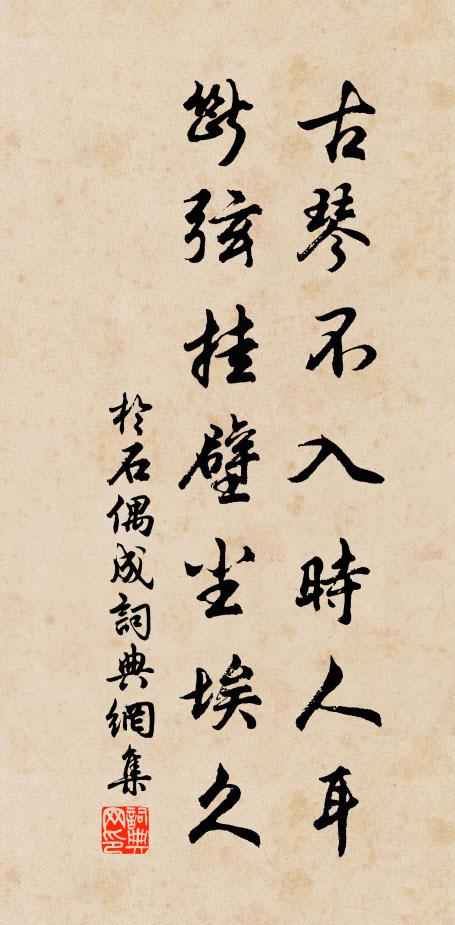 古琴不入時人耳
斷弦挂壁尘埃久
於石偶成詞典網集
詞典网印